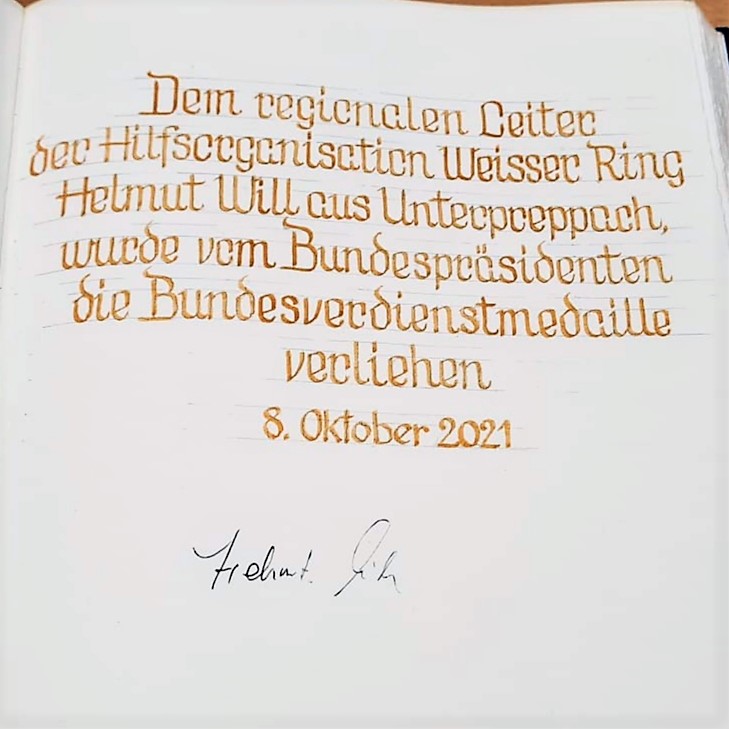 Dem regionalen Leiter
der Hilfsorganisation Weisser Ring
Helmut Will aus Unterpreppach,
wurde vom Bundespräsidenten
die Bundesverdienstmedaille
verliehen
8. Oktober 2021
Helmut Will